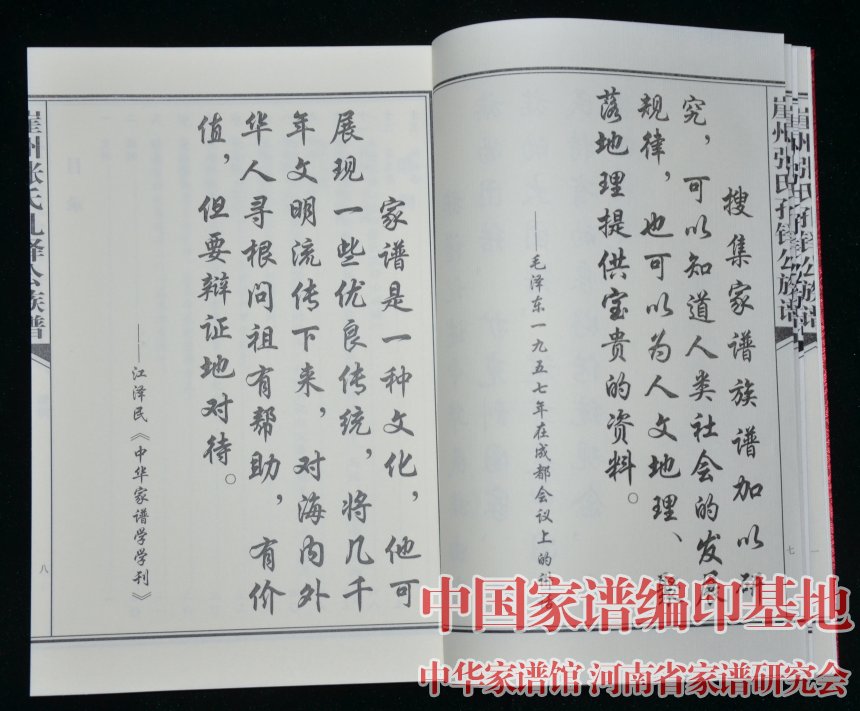 崖州张氏孔
公族谱
搜集家谱族谱加以研
究，可以知道人类社会的发展
规律，也可以为人文地理、聚
落地理提供宝贵的资料。
——毛泽东一九五七年在成都会议上的讲
七
一
家谱是一种文化，他可
展现一些优良传统，将几千
年文明流传下来，对海内外
华人寻根问祖有帮助，有价
值，但要辩证地对待。
——江泽民《中华家谱学学刊》
八
中国家谱编印基地
中华家谱馆 河南省家谱研究会